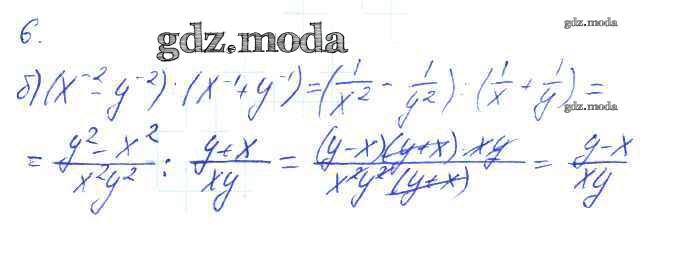 6.
gdz.moda
gdz.moda
б) (x⁻² - y⁻²) : (x⁻¹ + y⁻¹) = (1/x² - 1/y²) : (1/x + 1/y) =
gdz.moda
= (y² - x²)/(x²y²) : (y + x)/(xy) = ((y - x)(y + x) · xy)/(x²y²(y + x)) = (y - x)/(xy)